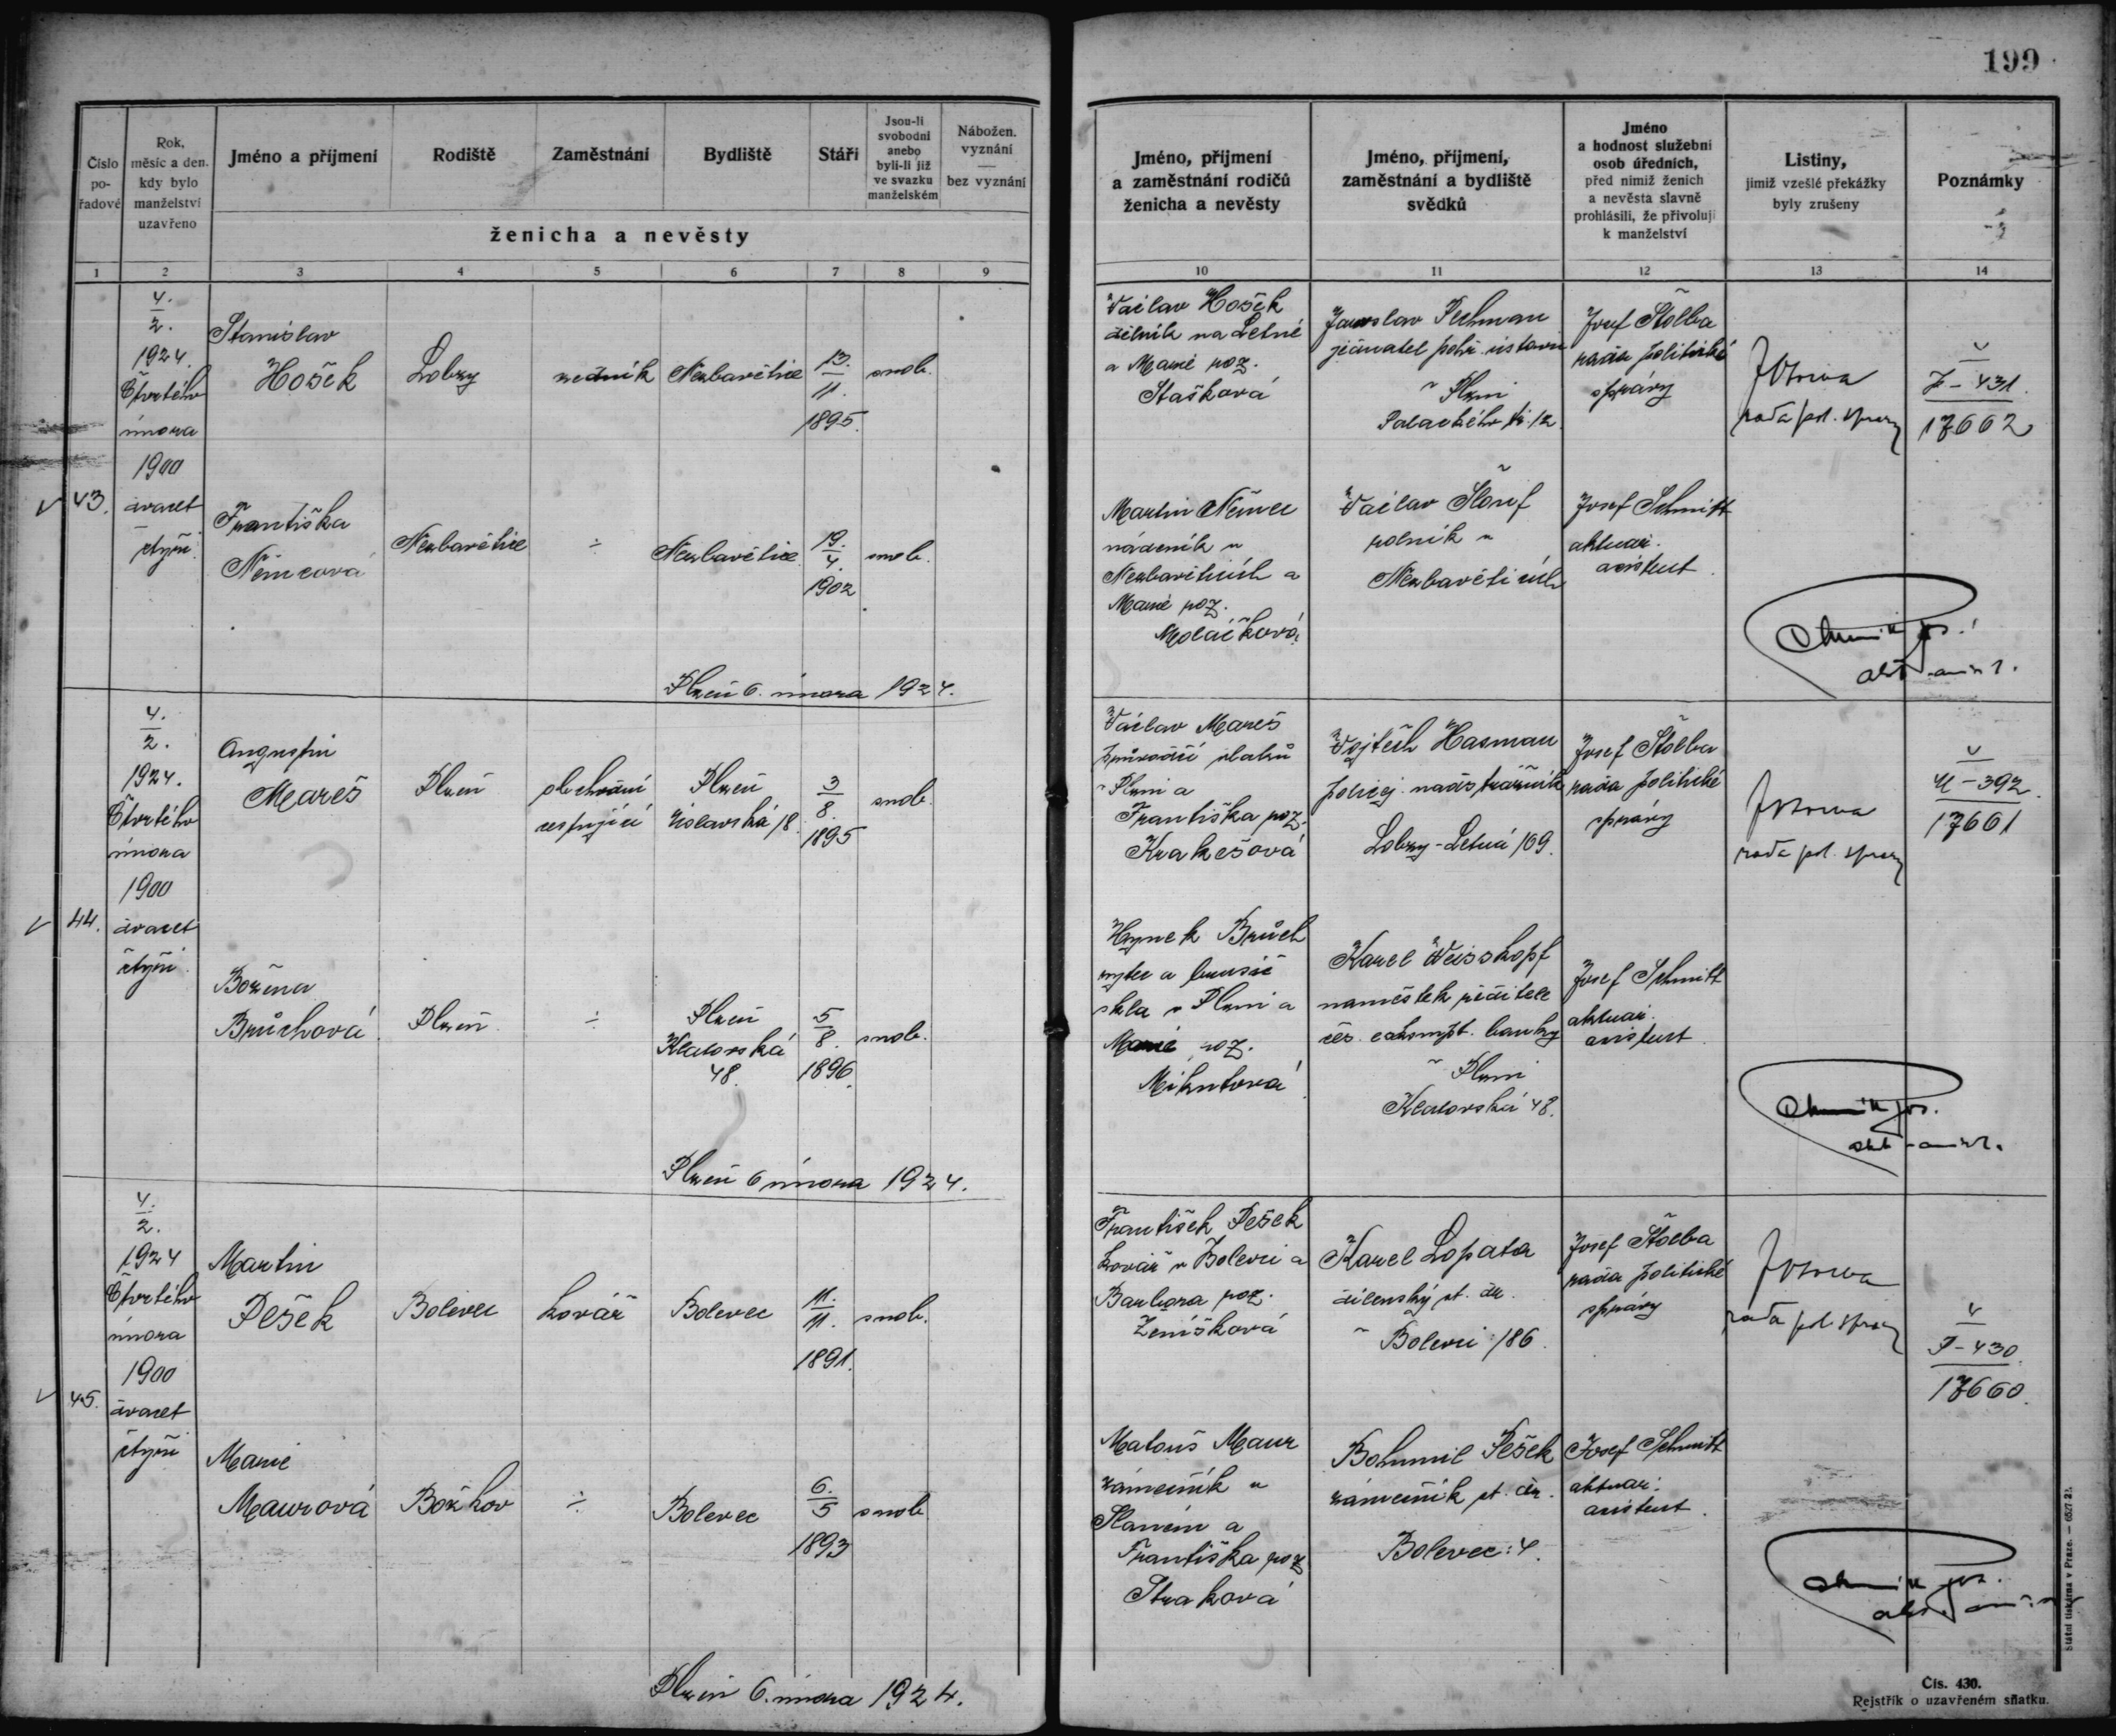 199
Číslo
po-
řadové
Rok,
měsíc a den.
kdy bylo
manželství
uzavřeno
Jméno a příjmení
Rodiště
Zaměstnání
Bydliště
Stáří
Jsou-li
svobodni
anebo
byli-li již
ve svazku
manželském
Nábožen.
vyznání
—
bez vyznání
ženicha a nevěsty
1 2 3 4 5 6 7 8 9
Jméno, příjmení
a zaměstnání rodičů
ženicha a nevěsty
Jméno, příjmení,
zaměstnání a bydliště
svědků
Jméno
a hodnost služební
osob úředních,
před nimiž ženich
a nevěsta slavně
prohlásili, že přivolují
k manželství
Listiny,
jimiž vzešlé překážky
byly zrušeny
Poznámky
10 11 12 13 14
43.
4.
2.
1924.
Čtvrtého
února
1900
dvacet
čtyři
Stanislav
Hošek
Lobzy
zedník
Nezbavětice
13.
11.
1895.
svob.
Františka
Němcová
Nezbavětice
÷
Nezbavětice
19.
4.
1902
svob.
Plzeň 6. února 1924.
Václav Hošek
dělník na Letné
a Marie roz.
Stašková
Jaroslav Pechman
jednatel pohř. ústavu
v Plzni
Palackého tř. 12
Josef Štolba
rada politické
správy
rada pol. správy
431
17662
Martin Němec
nádeník v
Nezbavěticích a
Marie roz.
Moláčková
Václav
rolník v
Nezbavěticích
Josef Schmitt
aktuár.
asistent.
44.
4.
2.
1924.
Čtvrtého
února
1900
dvacet
čtyři
Augustin
Mareš
Plzeň
obchodní
cestující
Plzeň
18.
3
8.
1895
svob.
Božena
Brůchová
Plzeň
÷
Plzeň
Klatovská
48.
5
8.
1896.
svob.
Plzeň 6 února 1924.
Václav Mareš
průvodčí vlaků
v Plzni a
Františka roz.
Krakešová
Vojtěch Hasman
policej. nadstrážník
Lobzy-Letná 109.
Josef Štolba
rada politické
správy
rada pol. správy
U - 392
17661
Hynek Brůch
rytec a brusič
skla v Plzni a
Marie roz.
Karel Weisskopf
náměstek ředitele
čes. eskompt. banky
v Plzni
Klatovská 48.
Josef Schmitt
aktuár.
asistent.
45.
4.
2.
1924
Čtvrtého
února
1900
dvacet
čtyři
Martin
Pešek
Bolevec
kovář
Bolevec
11.
11.
1891.
svob.
Marie
Maurová
Božkov
÷
Bolevec
6.
5
1893
svob
Plzeň 6. února 1924.
František Pešek
kovář v Bolevci a
Barbora roz.
Zeníšková
Karel Lopata
dílenský st. dr.
v Bolevci 186.
Josef Štolba
rada politické
správy
rada pol. správy
P - 430.
17660.
Matouš Maur
zámečník v
a
Františka roz
Straková
Bohumil Pešek
zámečník st. dr.
Bolevec: 4.
Josef Schmitt
aktuár.
asistent.
Státní tiskárna v Praze. — 652/7 21.
Čís. 430.
Rejstřík o uzavřeném sňatku.